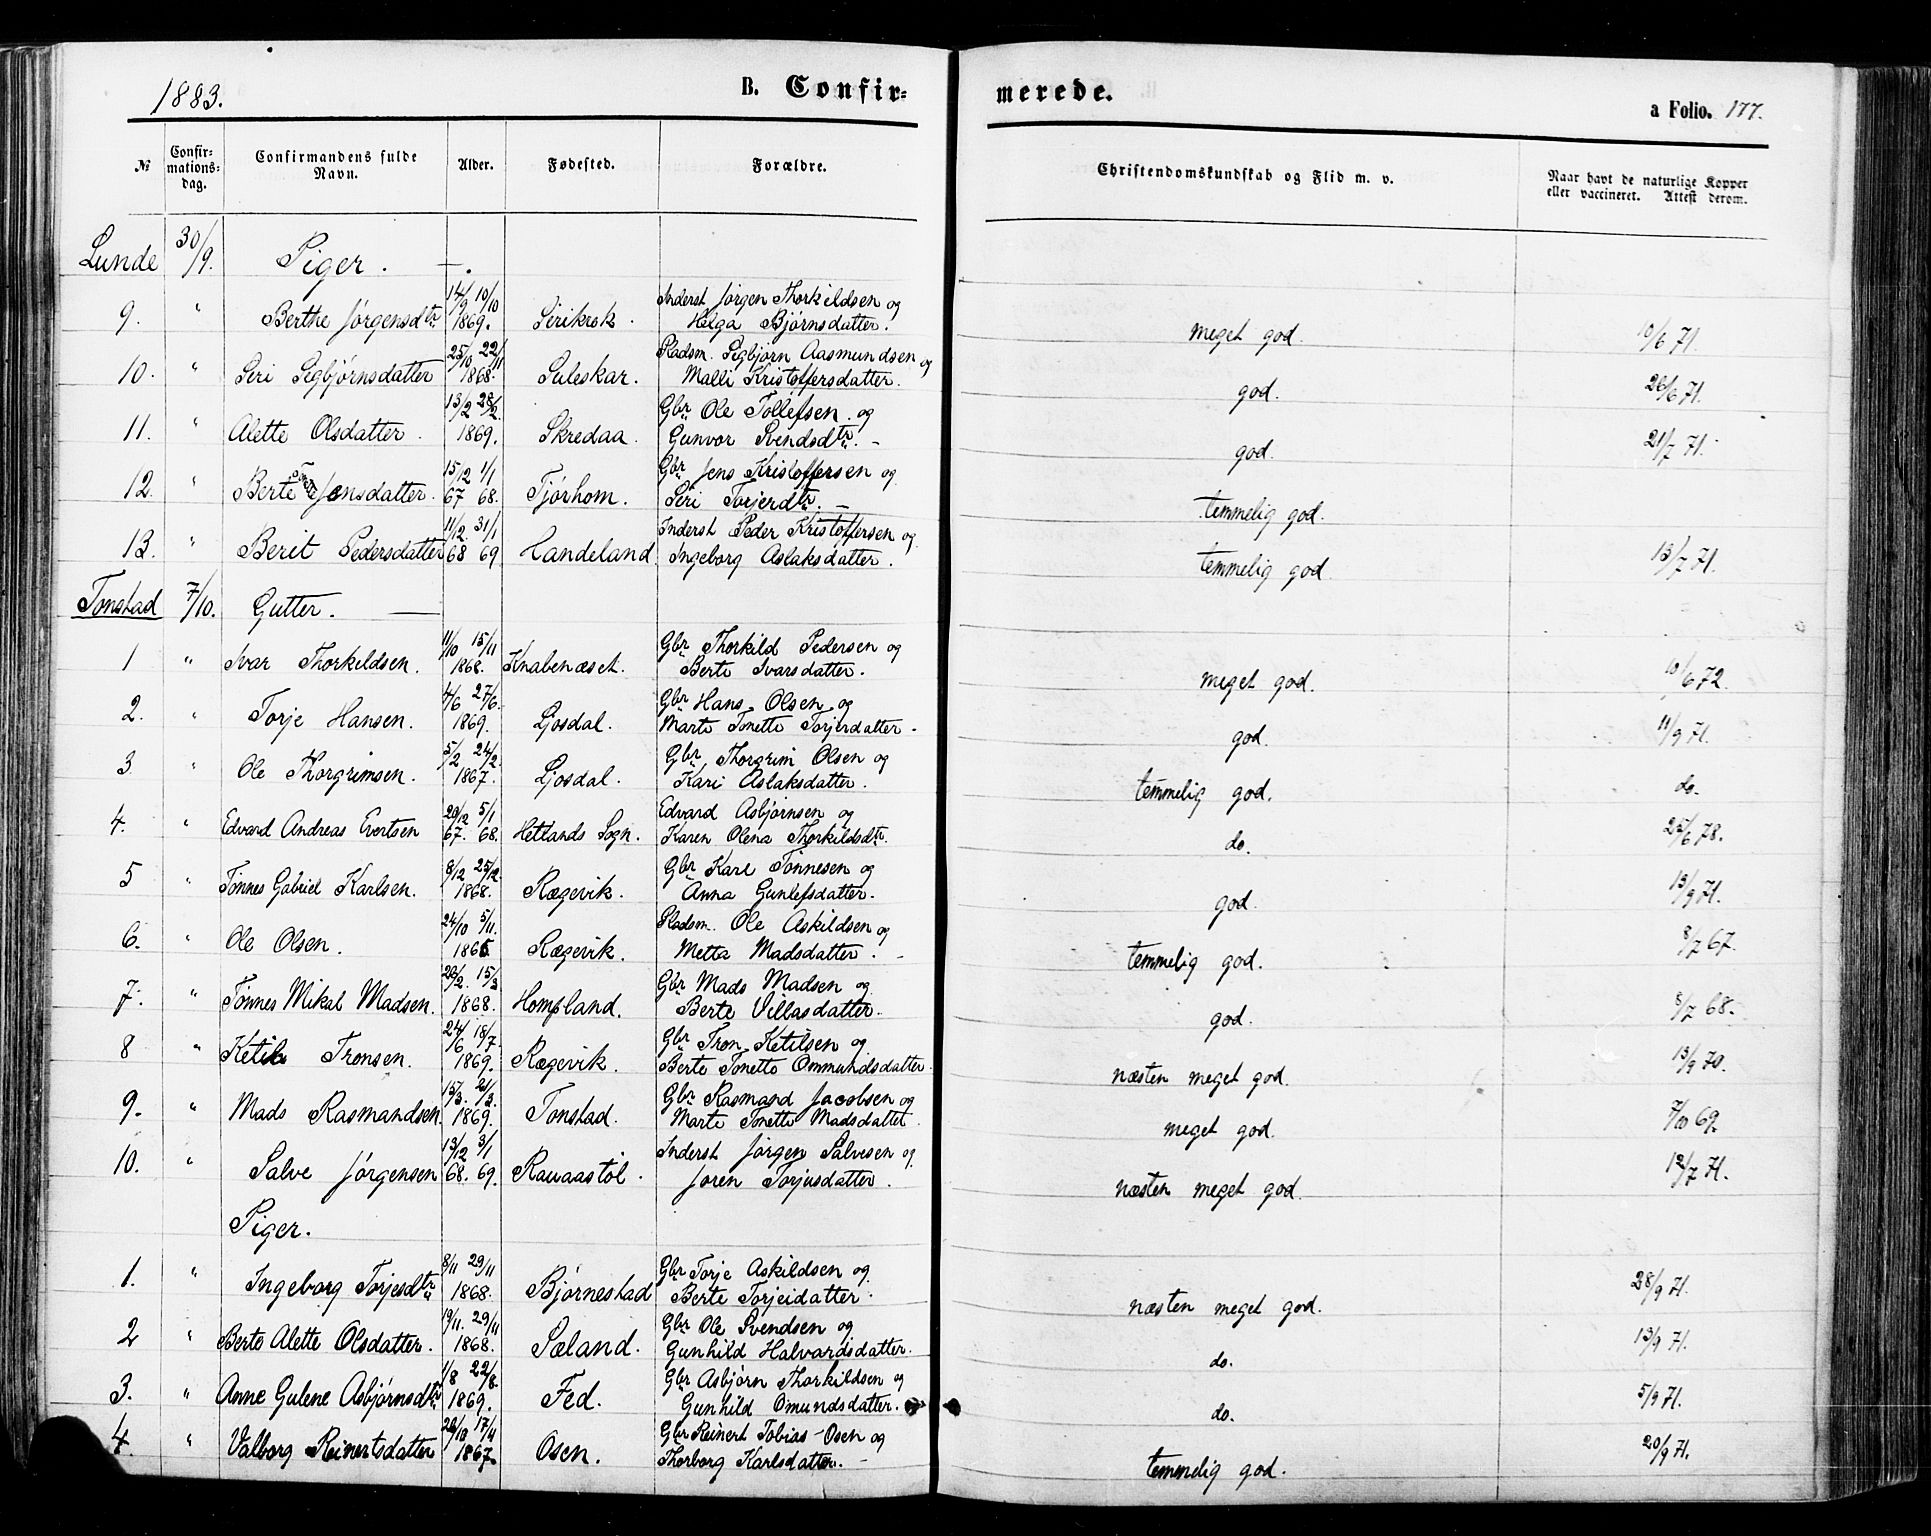 1883.
B. Confir-
merede.
a Folio. 177.
№
Confir-
mations-
dag.
Confirmandens fulde
Navn.
Alder.
Fødested.
Forældre.
Christendomskundskab og Flid m. v.
Naar havt de naturlige Kopper
eller vaccineret. Attest derom.
Lunde 30/9. Piger. —.
14/9 10/10 Inderst Jørgen Thorkildsen og
9. " Berthe Jørgensdtr. 1869. Sirikrok. Helga Bjørnsdatter. meget god. 10/6 71.
25/10 22/11 Pladsm. Sigbjørn Aasmundsen og
10. " Seri Sigbjørnsdatter 1868. Suleskar. Malli Kristoffersdatter. god. 26/6 71.
13/2 28/2. Gbr Ole Tollefsen og
11. " Alette Olsdatter. 1869. Skredaa. Gunvor Svendsdtr. — god. 21/7 71.
15/12 1/1 Gbr Jens Kristoffersen og
12. " Berte Jensdatter. 67 68. Tjørhom. Seri Torjerdtr. — temmelig god.
11/12. 31/1 Inderst Peder Kristoffersen og
13. " Berit Pedersdatter 68 69 Handeland. Ingeborg Aslaksdatter. temmelig god. 13/7 71.
Tonstad 7/10. Gutter. —
11/10 15/11 Gbr Thorkild Pedersen og
1 " Ivar Thorkildsen. 1868. Knabenæset. Berte Ivarsdatter. meget god. 10/6 72.
4/6 27/6. Gbr Hans Olsen og
2. " Torje Hansen. 1869. Ljosdal. Marte Tonette Torjerdatter. god. 11/9 71.
5/2 24/2. Gbr Thorgrim Olsen og
3 " Ole Thorgrimsen. 1867. Ljosdal. Kari Aslaksdatter. temmelig god. do.
29/12 5/1 Edvard Asbjørnsen og
4. " Edvard Andreas Evertsen 67. 68. Hetlands Sogn. Karen Olena Thorkildsdtr. do. 25/6 78.
8/12 25/12. Gbr Karl Tønnesen og
5 " Tønnes Gabriel Karlsen. 1868. Rægevik. Anna Gunlefsdatter. god. 13/9 71.
24/10 5/11. Pladsm. Ole Askildsen og
6. " Ole Olsen. 1865. Rægevik. Metta Madsdatter. — temmelig god. 8/7 67.
20/2. 15/3 Gbr Mads Madsen og
7. " Tønnes Mikal Madsen. 1868. Hompland. Berte Villasdatter. god. 8/7 68.
24/6 18/7 Gbr Tron Ketilsen og
8 " Ketil Tronsen. 1869. Rægevik. Berte Tonette Ommundsdatter. næsten meget god. 13/9 70.
15/3. 21/3. Gbr Rasmand Jacobsen og
9. " Mads Rasmandsen. 1869. Tonstad. Marte Tonette Madsdatter. meget god. 7/10 69.
13/12 3/1 Inderst Jørgen Salvesen og
10. " Salve Jørgensen 68. 69. Rauaastøl. Joren Torjusdatter. næsten meget god. 12/7 71.
Piger.
8/11 29/11 Gbr Torje Askildsen og
1. " Ingeborg Torjesdtr. 1868. Bjørnestad Berte Torjeidatter. næsten meget god. 28/9 71.
19/11. 29/11 Gbr Ole Svendsen og
2 " Berte Alette Olsdatter. 1868. Sæland. Gunhild Halvardsdatter. do. 13/9 71.
1/8 22/8. Gbr Asbjørn Thorkildsen og
3. " Anne Gulene Asbjørnsdtr. 1869. Fed. Gunhild Omundsdatter. do. 5/9 71.
20/10 17/11 Gbr Reinert Tobias Osen og
4 " Valborg Reinertsdatter 1867. Osen. Thorborg Karlsdatter. — temmelig god. 20/9 71.